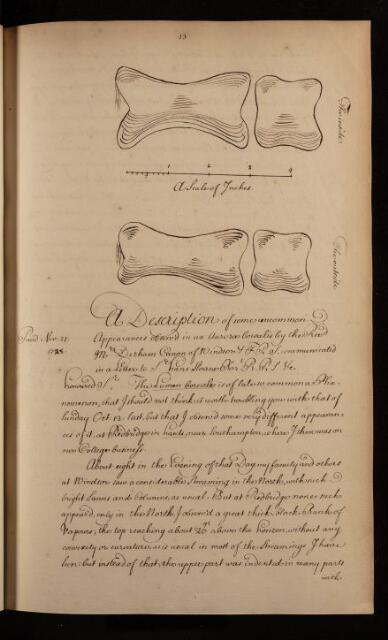 13
The inside
1 2 3 4
A Scale of Inches.
The outside
A Description of some uncommon
Appearances observ'd in an Aurora borealis by the Revd
Mr Derham Canon of Windsor & F.R.S. communicated
in a Letter to Sr Hans Sloane Bar. P.R.S. &c
Read. Nov. 21
1728.
honoured Sr. The borealis is of late so common a Phæ-
nomenon, that I should not think it worth troubling you with that of
Sunday Oct. 13. last, but that I observ'd some very different appearan-
ces of it, at Redbridge in hants, near Southampton, where I then was on
our College business.
About eight in the Evening of that Day my family and others
at Windsor saw a considerable Streaming in the North, with such
bright Lances and Columns as usual. But at Redbridge none such
appear'd, only in the North I observ'd a great thick black Bank of
Vapours, the top reaching about 20 above the horizon, without any
convexity or curvature, as is usual in most of the Streamings I have
seen: but instead of that, the upper part was indented in many parts
with